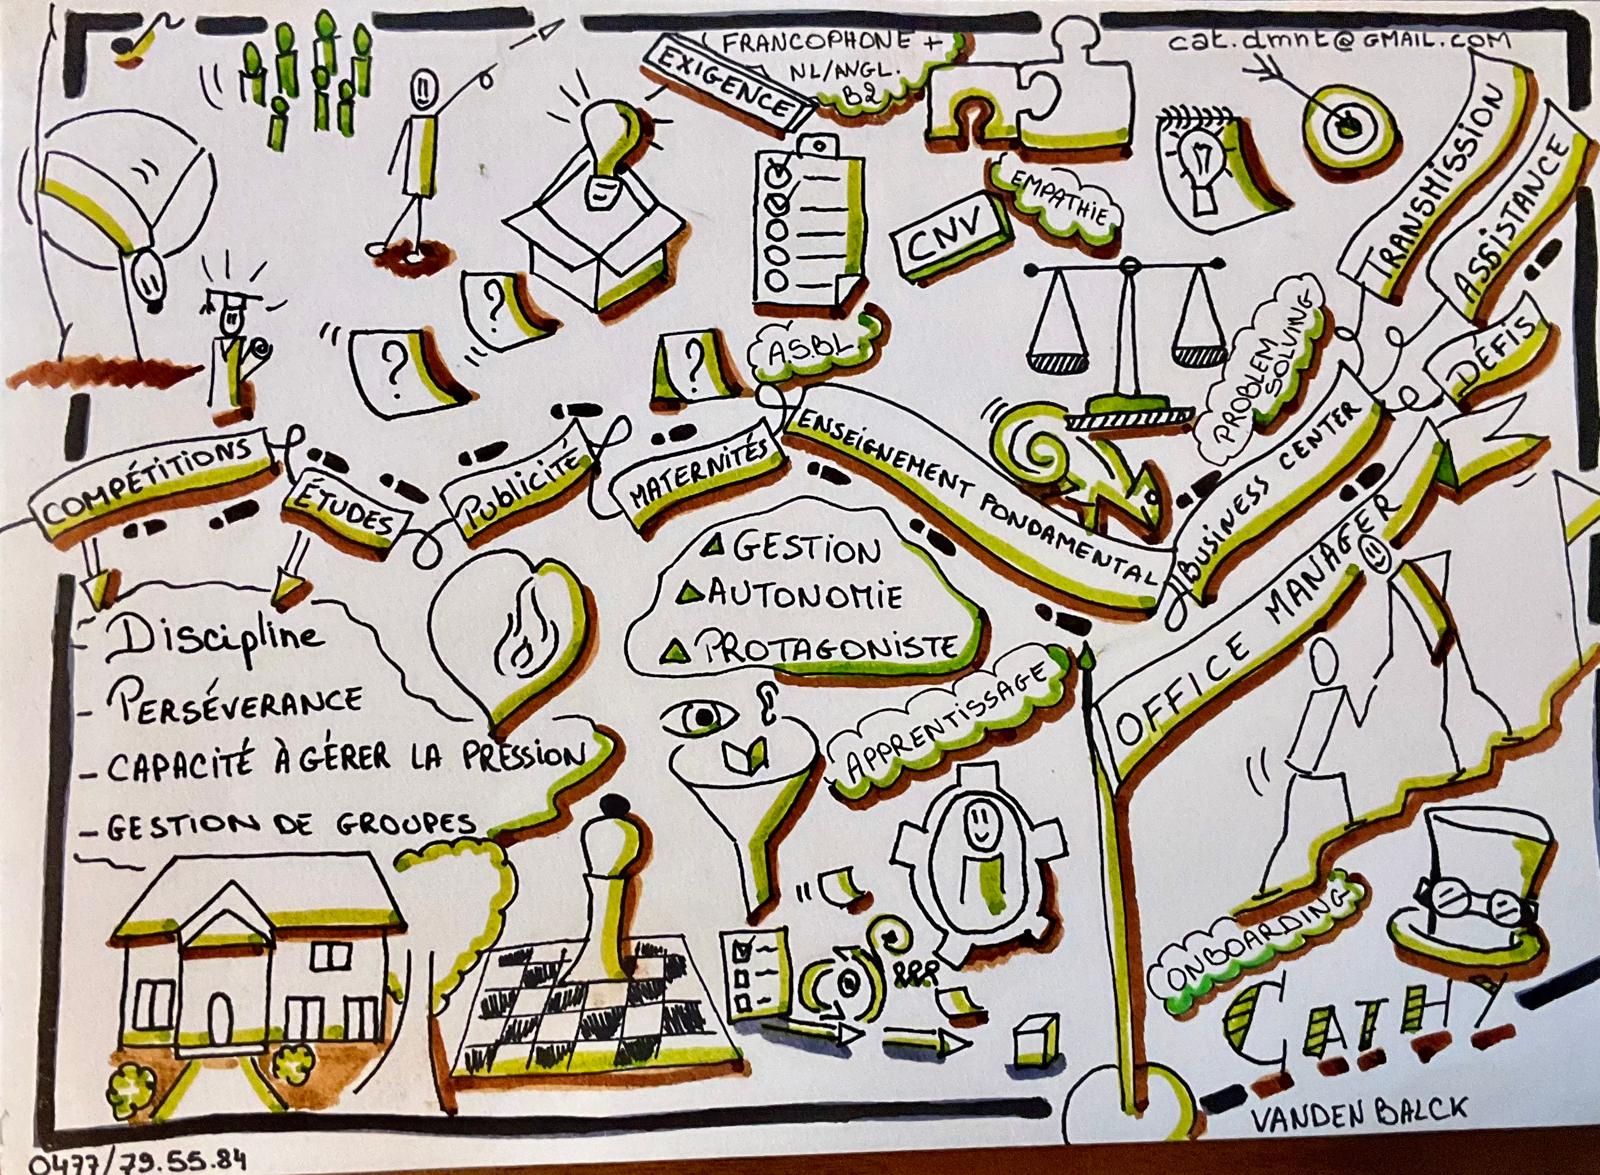 FRANCOPHONE +
NL/ANGL.
B2
EXIGENCE
cat.dmnt@GMAIL.COM
TRANSMISSION
ASSISTANCE
DÉFIS
EMPATHIE
CNV
?
?
?
A.S.BL
PROBLEM
SOLVING
COMPÉTITIONS
ÉTUDES
PUBLICITÉ
MATERNITÉS
ENSEIGNEMENT FONDAMENTAL
BUSINESS CENTER
OFFICE MANAGER
GESTION
AUTONOMIE
PROTAGONISTE
- DISCIPLINE
- PERSÉVERANCE
- CAPACITÉ À GÉRER LA PRESSION
- GESTION DE GROUPES
APPRENTISSAGE
ONBOARDING
CATHY
VANDEN BALCK
0477/79.55.84